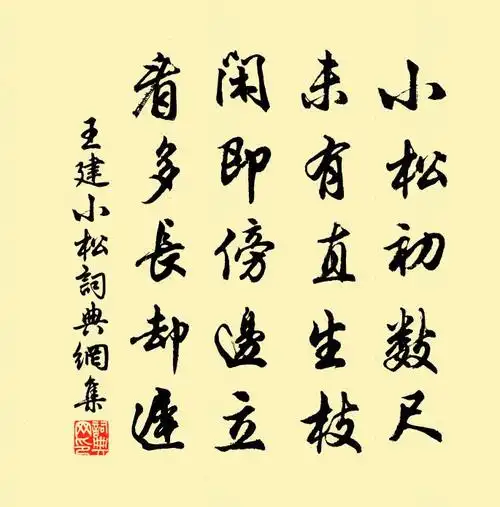 小松初数尺
未有直生枝
閑即傍邊立
看多長却遲
王建小松詞典網集
詞典網